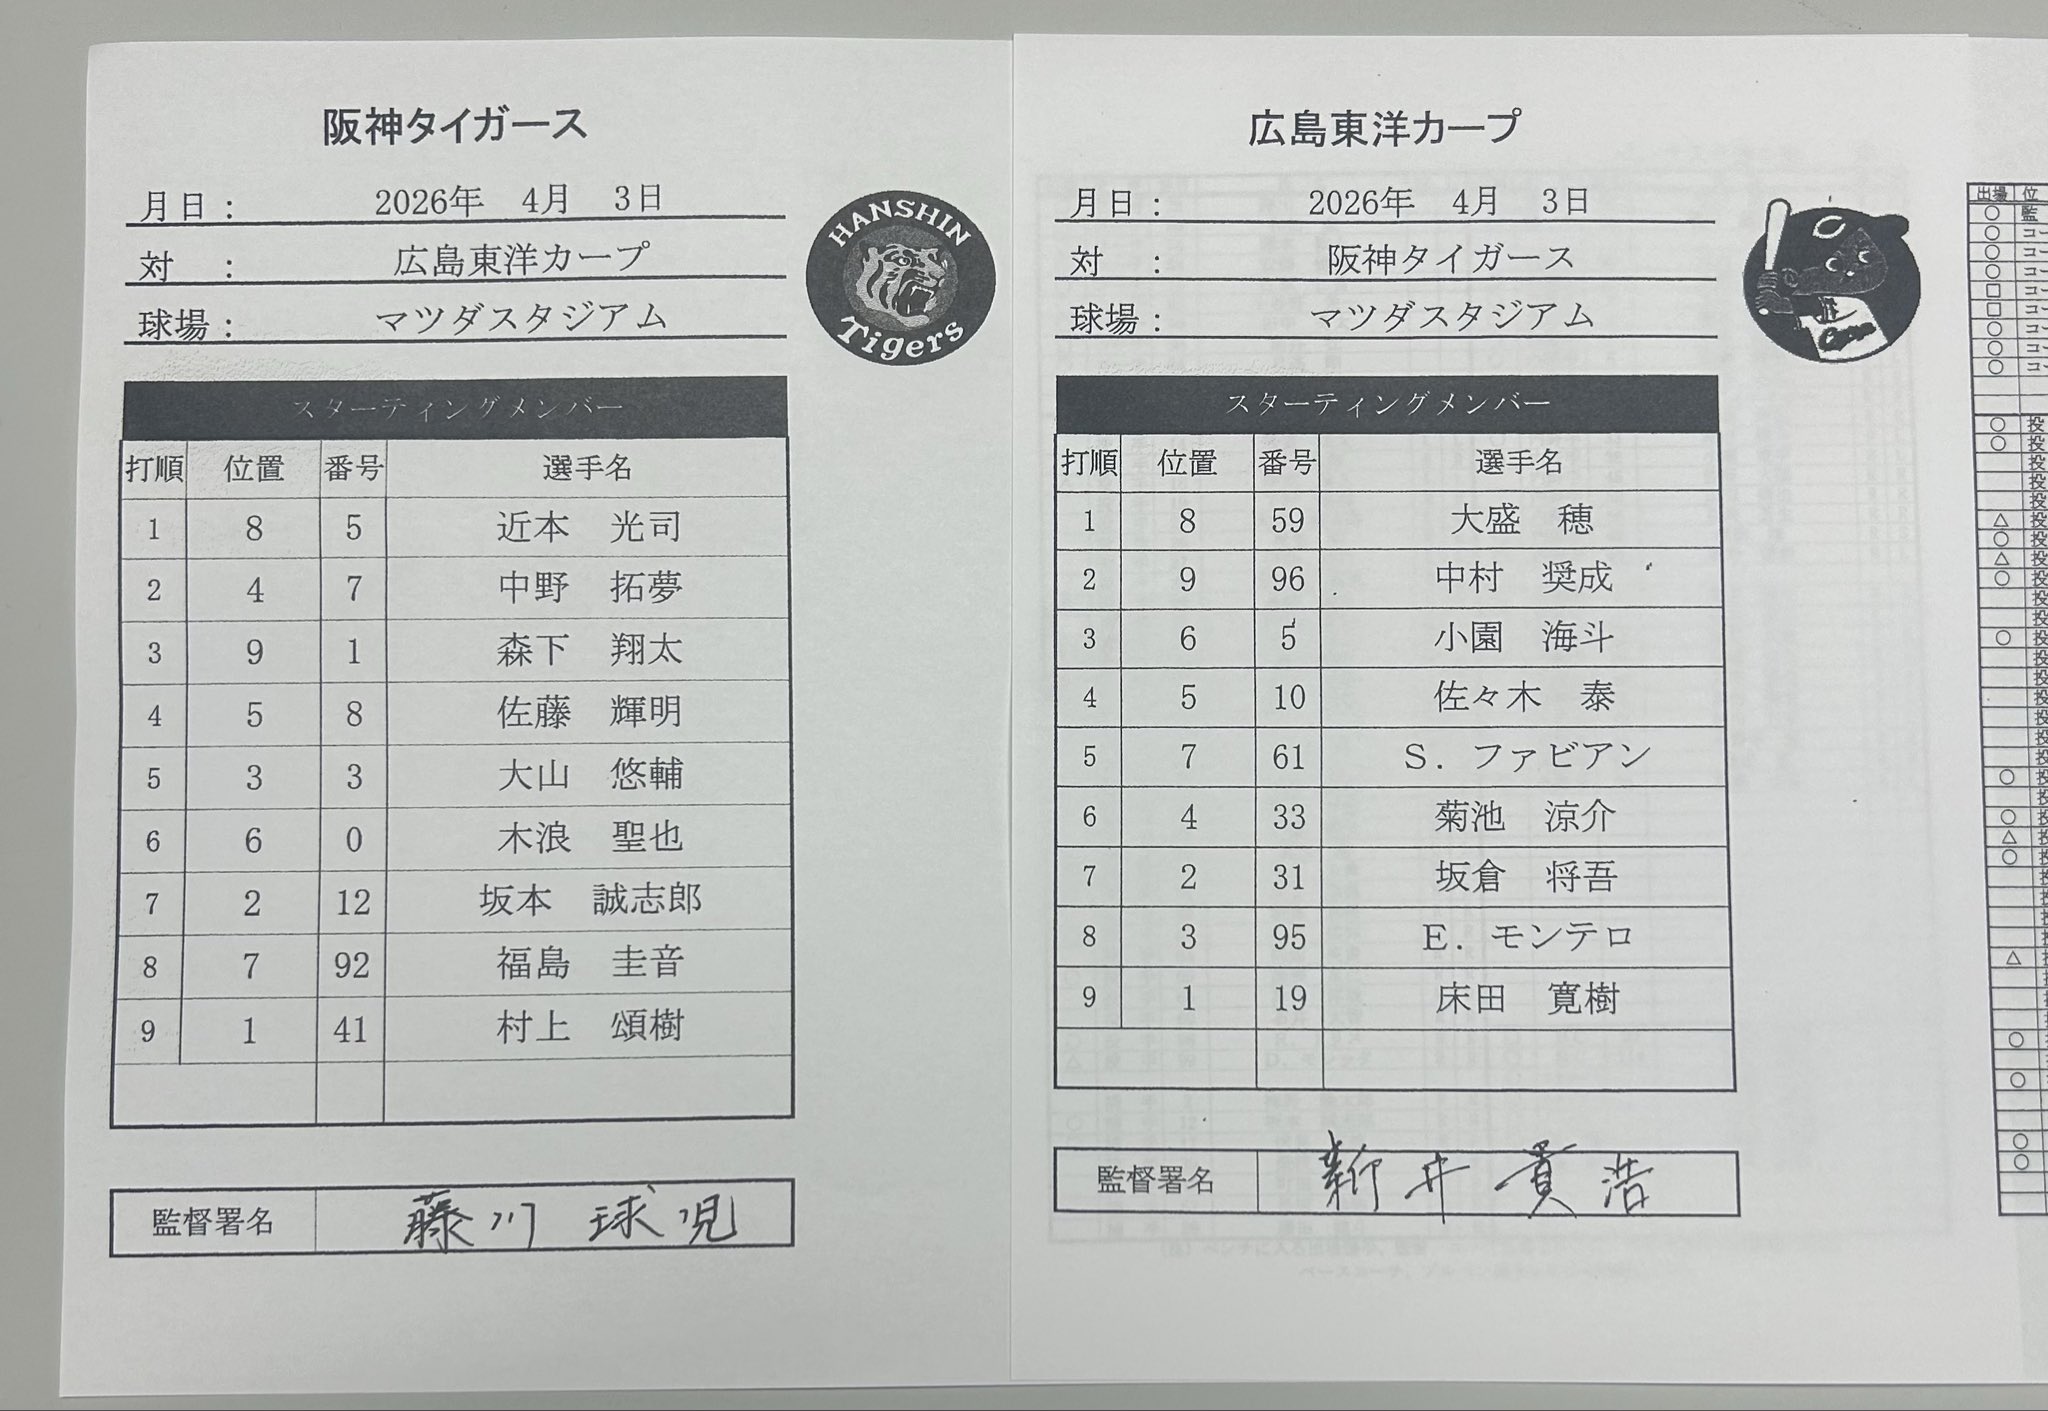 阪神タイガース
月日： 2026年 4月 3日
対 ： 広島東洋カープ
球場： マツダスタジアム
HANSHIN
Tigers
スターティングメンバー
打順 位置 番号 選手名
1 8 5 近本 光司
2 4 7 中野 拓夢
3 9 1 森下 翔太
4 5 8 佐藤 輝明
5 3 3 大山 悠輔
6 6 0 木浪 聖也
7 2 12 坂本 誠志郎
8 7 92 福島 圭音
9 1 41 村上 頌樹
監督署名 藤川 球児
広島東洋カープ
月日： 2026年 4月 3日
対 ： 阪神タイガース
球場： マツダスタジアム
スターティングメンバー
打順 位置 番号 選手名
1 8 59 大盛 穂
2 9 96 中村 奨成
3 6 5 小園 海斗
4 5 10 佐々木 泰
5 7 61 S. ファビアン
6 4 33 菊池 涼介
7 2 31 坂倉 将吾
8 3 95 E. モンテロ
9 1 19 床田 寛樹
監督署名 新井 貴浩
出場 位
○ 監
○ コー
○ コー
○ コー
□ コー
□ コー
○ コー
○ コー
○ コー
○ 投
○ 投